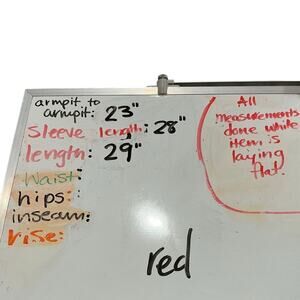 armpit to
armpit: 23"
Sleeve length: 28"
length: 29"
Waist:
hips:
inseam:
rise:
All
measurements
done while
item is
laying
flat.
red